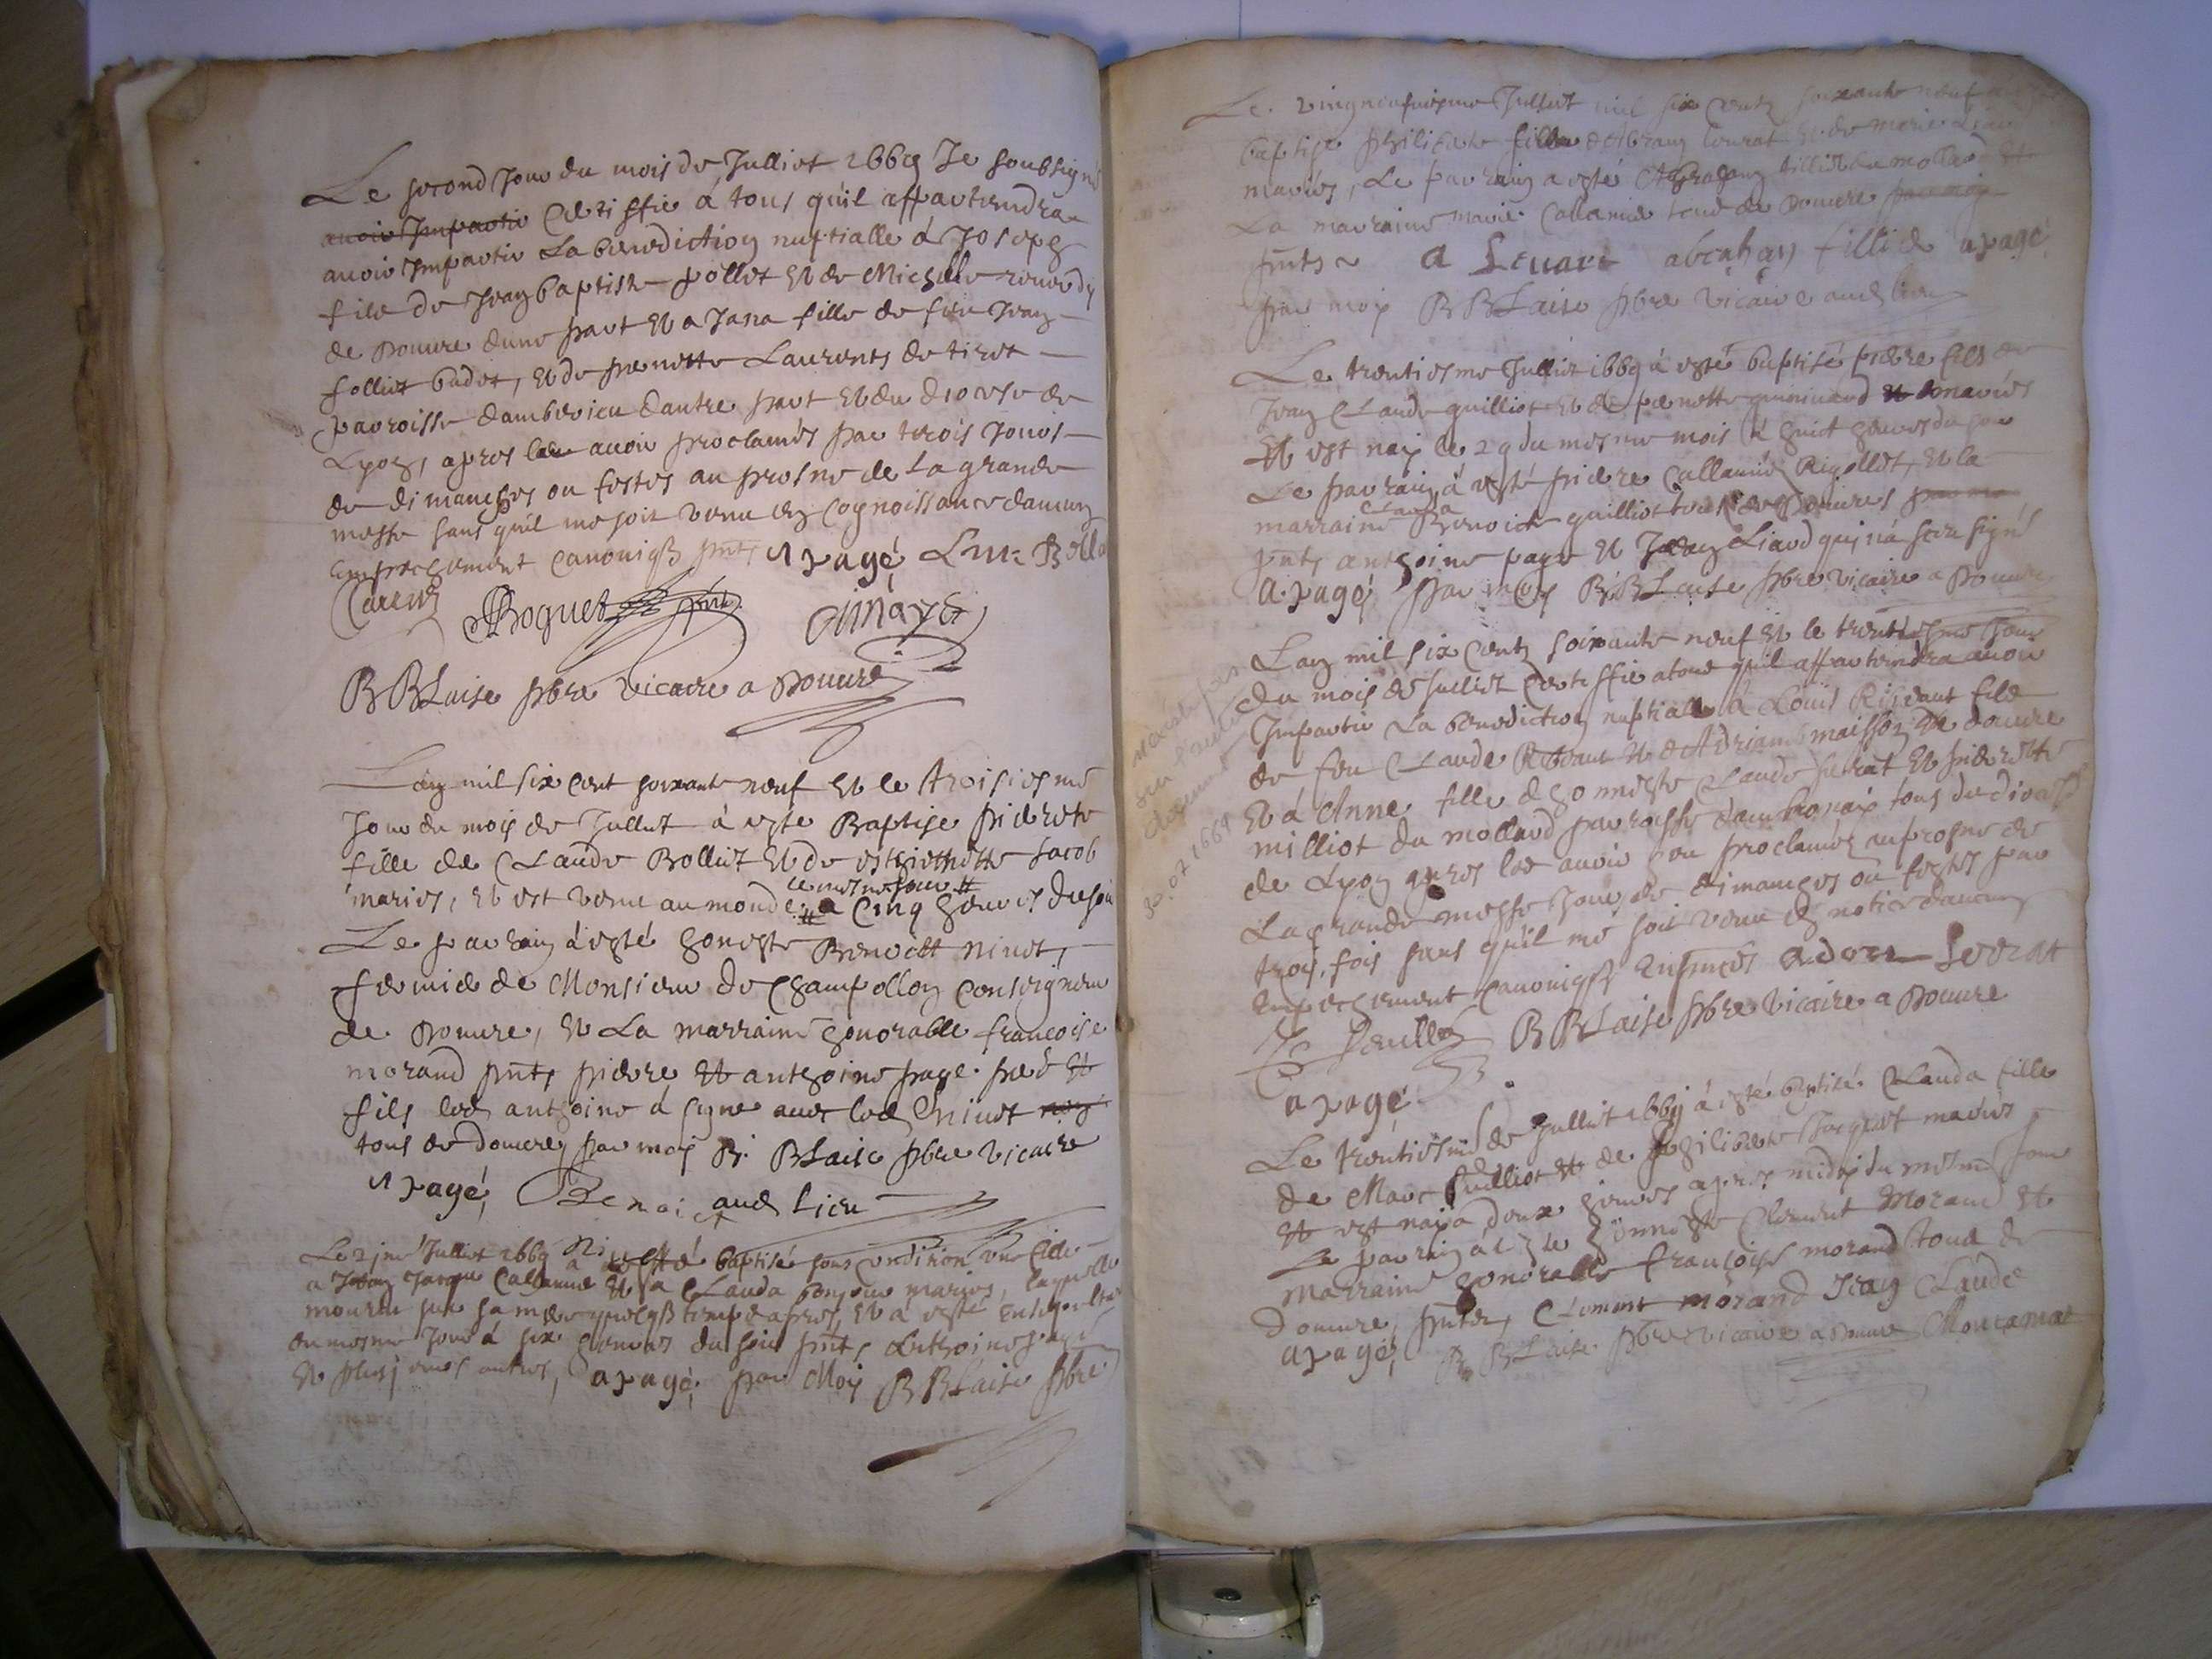 Le second Jour du mois de Julliet 1669 Je soubsigné
avoir Impartir Certiffie á tous qu'il appartiendra
avoir Impartir La benediction nuptialle á Joseph
fils de Jean baptiste pollet Et de Michelle
de Douvre dune part Et a Jana fille de feu Jean
folliet badet, Et de pernette Laurents de tiret
parroisse dambérieu dautre part Et du diocese de
Lyon, apres les avoir proclamés par trois Jours
de dimanches ou festes au prosne de la grande
messe sans qu'il me soit venu en Cognoissance daucun
empeschement Canoniq pnts apagé
Boguet
B BLaise pbre vicaire a Douvre
Lan mil six cent soixante neuf Et le troisiesme
Jour du mois de Julliet á esté Baptise pierrette
fille de Claude Bolliet Et de estiennette Jacob
mariés, Et est venu au monde a Cinq heures du soir
le mesme Jour
Le parrain á esté honeste Benoict ninet,
fermier de Monsieur de Champollon Conseigneur
de Douvre, Et La marraine honorable francoise
morand pnts pierre Et anthoine page pere Et
fils led anthoine á signe avec led Ninet
tous de douvre, par moy B. BLaise pbre vicaire
apagé, Benoict aud Lieu
Ninet
Julliet 1669 a esté baptisé sous condition une fille
a Jean Jaque Callamie Et a Clauda mariés, laquelle
mourru sur sa mere quelq temps apres, Et a esté ensepulturé
du mesme Jour á six heures du soir pnts Anthoine page
Et plusieurs autres, apagé par Moy B BLaise pbre
Le vingneufiesme Julliet mil six Cents soixante neuf
baptise philiberte fille Et de marie
mariés, Le parrain a esté Abraham filliet du mollard Et
La marraine marie Callamie tous de Douvre par moy
pnts a abrahan fillie apagé
par moy B BLaise pbre vicaire aud lieu
Le trentiesme Julliet 1669 á esté baptisé pierre fils de
Jean Claude guilliet Et de pernette Et mariés
Et est nay le 29 du mesme mois á huict heures du soir
Le parrain á esté pierre Callamie Rigollet, Et la
marraine Clauda Benoicte guilliet tous de Douvres par mo
pnts anthoine page Et Jean Liard qui n'á sceu signé
apagé par moy B. BLaise pbre vicaire a Douvre
Lan mil six Cents soixante neuf Et le trentiesme Jour
du mois de Julliet Certiffie a tous qu'il appartiendra avoir
Impartir La benediction nuptialle á Louis fils
de feu Claude Et Adriane maisson de douvre
Et á Anne fille de honneste Claude Et pierrette
milliot du mollard parroisse dambronay tous du dioces
de Lyon apres les avoir proclamés au prosne de
La grande messe Jour de dimanches ou festes par
trois fois sans qu'il me soit venu en notice daucun
empeschement Canoniq
B BLaise pbre vicaire a Douvre
apagé
30.07.1669
Le trentiesme de Julliet 1669 á esté baptisé Clauda fille
de Marc Et de philiberte mariés
Et est nay a deux heures apres midy du mesme Jour
Le parrain á esté honneste Clement Morand Et
Marraine honorable francoise morand tous de
Douvre, pnts, Clement morand Jean Claude
apagé B BLaise pbre vicaire a Douvre